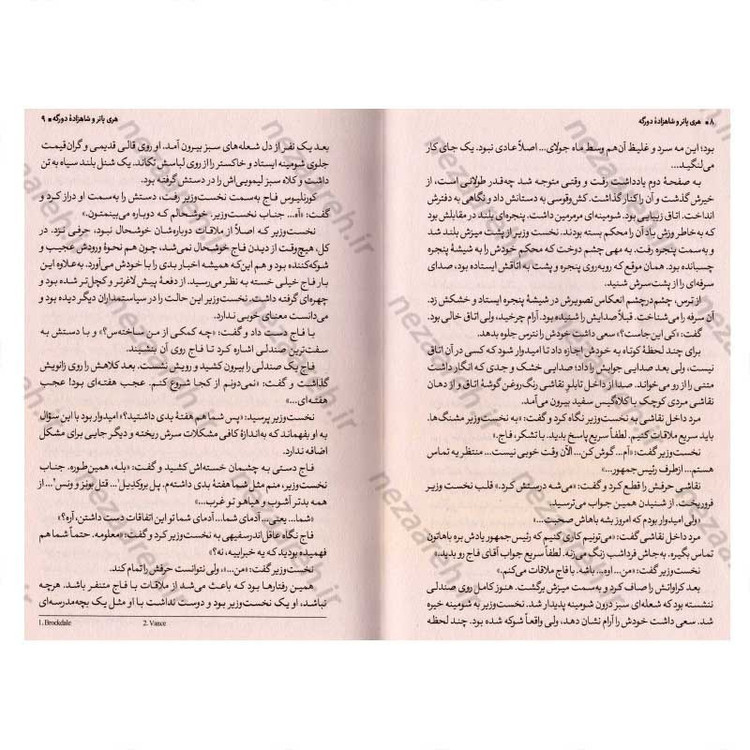 ۸ ■ هری پاتر و شاهزادهٔ دورگه
بود؛ این مه سرد و غلیظ آن‌هم وسط ماه جولای... اصلاً عادی نبود. یک جای کار
می‌لنگید...
به صفحهٔ دوم یادداشت رفت و وقتی متوجه شد چه‌قدر طولانی است، از
خیرش گذشت و آن را کنار گذاشت. کش‌وقوسی به دستانش داد و نگاهی به دفترش
انداخت. اتاق زیبایی بود. شومینه‌ای مرمرین داشت. پنجره‌ای بلند در مقابلش بود
که به‌خاطر وزش باد آن را محکم بسته بودند. نخست وزیر از پشت میزش بلند شد
و به‌سمت پنجره رفت. به مهی چشم دوخت که محکم خودش را به شیشهٔ پنجره
چسبانده بود. همان موقع که روبه‌روی پنجره و پشت به اتاقش ایستاده بود، صدای
سرفه‌ای را از پشت‌سرش شنید.
از ترس، چشم‌درچشم انعکاس تصویرش در شیشهٔ پنجره ایستاد و خشکش زد.
آن سرفه را می‌شناخت. قبلاً صدایش را شنیده بود. آرام چرخید، ولی اتاق خالی بود.
گفت: «کی این‌جاست؟» سعی داشت خودش را نترس جلوه بدهد.
برای چند لحظهٔ کوتاه به خودش اجازه داد تا امیدوار شود که کسی در آن اتاق
نیست، ولی بعد صدایی جوابش را داد؛ صدایی خشک و جدی که انگار داشت
متنی را از رو می‌خواند. صدا از داخل تابلو نقاشی رنگ‌روغن گوشهٔ اتاق و از دهان
نقاشی مردی کوچک با کلاه‌گیس سفید بیرون می‌آمد.
مرد داخل نقاشی به نخست‌وزیر نگاه کرد و گفت: «به نخست‌وزیر مشنگ‌ها.
باید سریع ملاقات کنیم. لطفاً سریع پاسخ بدید. با تشکر، فاج.»
نخست‌وزیر گفت: «آم... گوش کن... الآن وقت خوبی نیست... منتظر یه تماس
هستم... ازطرف رئیس‌جمهور...»
نقاشی حرفش را قطع کرد و گفت: «می‌شه درستش کرد.» قلب نخست وزیر
فروریخت. از شنیدن همین جواب می‌ترسید.
«ولی امیدوار بودم که امروز بشه باهاش صحبت...»
مرد داخل نقاشی گفت: «می‌تونیم کاری کنیم که رئیس‌جمهور یادش بره باهاتون
تماس بگیره. به‌جاش فرداشب زنگ می‌زنه. لطفاً سریع جواب آقای فاج رو بدید.»
نخست‌وزیر گفت: «من... اوه... باشه. با فاج ملاقات می‌کنم.»
بعد کراواتش را صاف کرد و به‌سمت میزش برگشت. هنوز کامل روی صندلی
ننشسته بود که شعله‌ای سبز درون شومینه پدیدار شد. نخست‌وزیر به شومینه خیره
شد. سعی داشت خودش را آرام نشان دهد، ولی واقعاً شوکه شده بود. چند لحظه
هری پاتر و شاهزادهٔ دورگه ■ ۹
بعد یک نفر از دل شعله‌های سبز بیرون آمد. او روی قالی قدیمی و گران‌قیمت
جلوی شومینه ایستاد و خاکستر را از روی لباسش تکاند. یک شنل بلند سیاه به تن
داشت و کلاه سبز لیمویی‌اش را در دستش گرفته بود.
کورنلیوس فاج به‌سمت نخست‌وزیر رفت، دستش را به‌سمت او دراز کرد و
گفت: «آه... جناب نخست‌وزیر، خوشحالم که دوباره می‌بینمتون.»
نخست‌وزیر که اصلاً از ملاقات دوباره‌شان خوشحال نبود، حرفی نزد. در
کل، هیچ‌وقت از دیدن فاج خوشحال نمی‌شد، چون هم نحوهٔ ورودش عجیب و
شوکه‌کننده بود و هم این‌که همیشه اخبار بدی را با خودش می‌آورد. به‌علاوه این
بار فاج خیلی خسته به نظر می‌رسید. از دفعهٔ پیش لاغرتر و کچل‌تر شده بود و
چهره‌ای گرفته داشت. نخست‌وزیر این حالت را در سیاستمداران دیگر دیده بود و
می‌دانست معنای خوبی ندارد.
با فاج دست داد و گفت: «چه کمکی از من ساخته‌س؟» و با دستش به
سفت‌ترین صندلی اشاره کرد تا فاج روی آن بنشیند.
فاج یک صندلی را بیرون کشید و رویش نشست. بعد کلاهش را روی زانویش
گذاشت و گفت: «نمی‌دونم از کجا شروع کنم. عجب هفته‌ای بود! عجب
هفته‌ای...»
نخست‌وزیر پرسید: «پس شما هم هفتهٔ بدی داشتید؟» امیدوار بود با این سؤال
به او بفهماند که به‌اندازهٔ کافی مشکلات سرش ریخته و دیگر جایی برای مشکل
اضافه ندارد.
فاج دستی به چشمان خسته‌اش کشید و گفت: «بله، همین‌طوره. جناب
نخست‌وزیر، منم مثل شما هفتهٔ بدی داشته‌م. پل بروکدیل¹... قتل بونز و ونس²... از
همه بدتر آشوب و هیاهو تو غرب...»
«شما... یعنی... آدمای شما... آدمای شما تو این اتفاقات دست داشتن، آره؟»
فاج نگاه عاقل‌اندرسفیهی به نخست‌وزیر کرد و گفت: «معلومه. حتماً شما هم
فهمیده بودید که یه خبراییه، نه؟»
نخست‌وزیر گفت: «من...»؛ ولی نتوانست حرفش را تمام کند.
همین رفتارها بود که باعث می‌شد از ملاقات با فاج متنفر باشد. هرچه
نباشد، او یک نخست‌وزیر بود و دوست نداشت با او مثل یک بچه‌مدرسه‌ای
1. Brockdale 2. Vance
nezaareh.ir